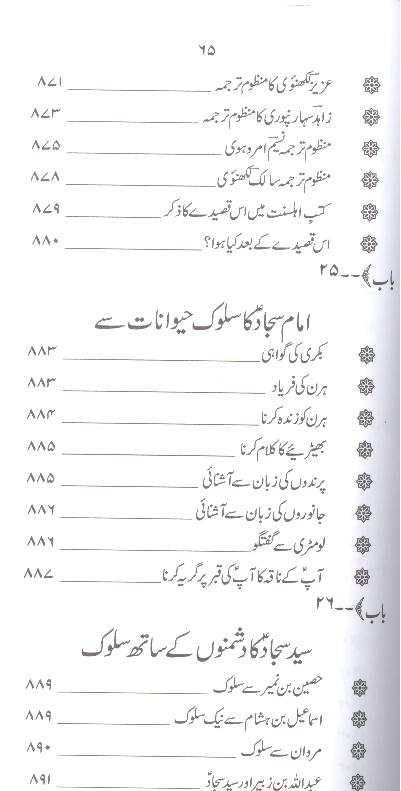 ۶۵
عزیز لکھنؤی کا منظوم ترجمہ ۸۷۱
زاہد سہارنپوری کا منظوم ترجمہ ۸۷۳
منظوم ترجمہ نسیم امروہوی ۸۷۵
منظوم ترجمہ سالک لکھنؤی ۸۷۸
کتبِ اہلسنت میں اس قصیدے کا ذکر ۸۷۹
اس قصیدے کے بعد کیا ہوا؟ ۸۸۰
باب ﴾۔۔۲۵
امام سجادؑ کا سلوک حیوانات سے
بکری کی گواہی ۸۸۳
ہرن کی فریاد ۸۸۳
ہرن کو زندہ کرنا ۸۸۴
بھیڑیئے کا کلام کرنا ۸۸۵
پرندوں کی زبان سے آشنائی ۸۸۵
جانوروں کی زبان سے آشنائی ۸۸۶
لومڑی سے گفتگو ۸۸۶
آپؑ کے ناقہ کا آپؑ کی قبر پر گریہ کرنا ۸۸۷
باب ﴾۔۔۲۶
سید سجادؑ کا دشمنوں کے ساتھ سلوک
حصین بن نمیر سے سلوک ۸۸۹
اسماعیل بن ہشام سے نیک سلوک ۸۸۹
مروان سے سلوک ۸۹۰
عبداللہ بن زبیر اور سید سجادؑ ۸۹۱